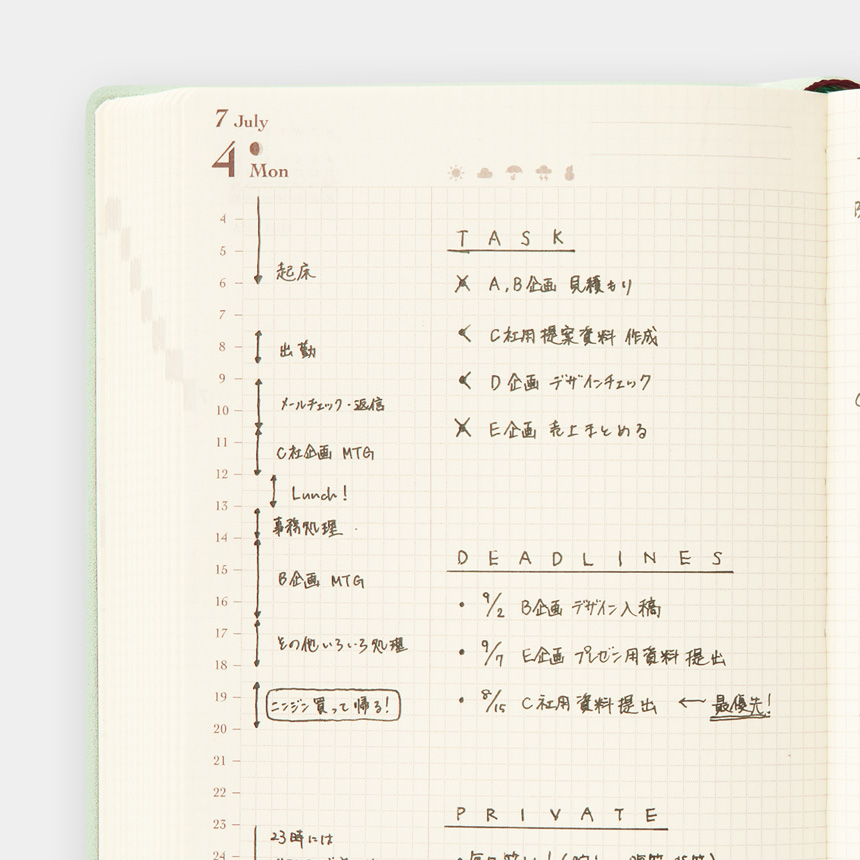 7 July
4 Mon
4
5
6
7
8
9
10
11
12
13
14
15
16
17
18
19
20
21
22
23
24
起床
出勤
メールチェック・返信
C社企画 MTG
Lunch!
事務処理
B企画 MTG
その他いろいろ処理
ニンジン買って帰る!
23時には
TASK
A,B企画 見積もり
C社用提案資料 作成
D企画 デザインチェック
E企画 売上まとめる
DEADLINES
・9/2 B企画 デザイン入稿
・9/7 E企画 プレゼン用資料提出
・8/15 C社用資料提出 ← 最優先!
PRIVATE